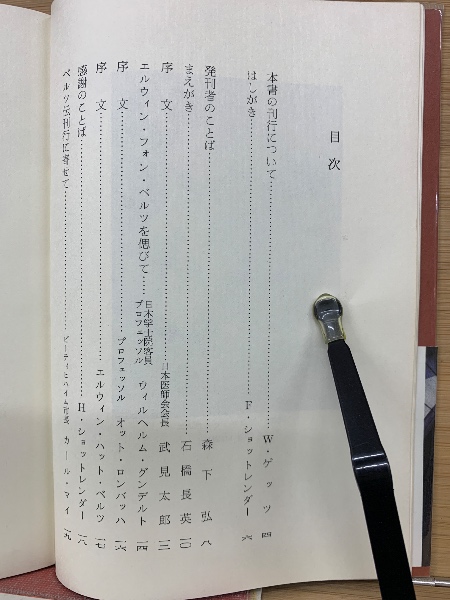 目次
本書の刊行について……W・ゲッツ 四
はしがき……F・ショットレンダー 六
発刊者のことば……森下弘 八
まえがき……石橋長英 一〇
序文……日本医師会会長 武見太郎 一三
エルウィン・フォン・ベルツを偲びて……日本学士院客員 プロフェッソル ウィルヘルム・グンデルト 一四
序文……プロフェッソル オット・ロンバッハ 一六
序文……エルウィン・ハット・ベルツ 一七
感謝のことば……H・ショットレンダー 一八
ベルツ伝刊行に寄せて……ビーティヒハイム市長 カール・マイ 一九